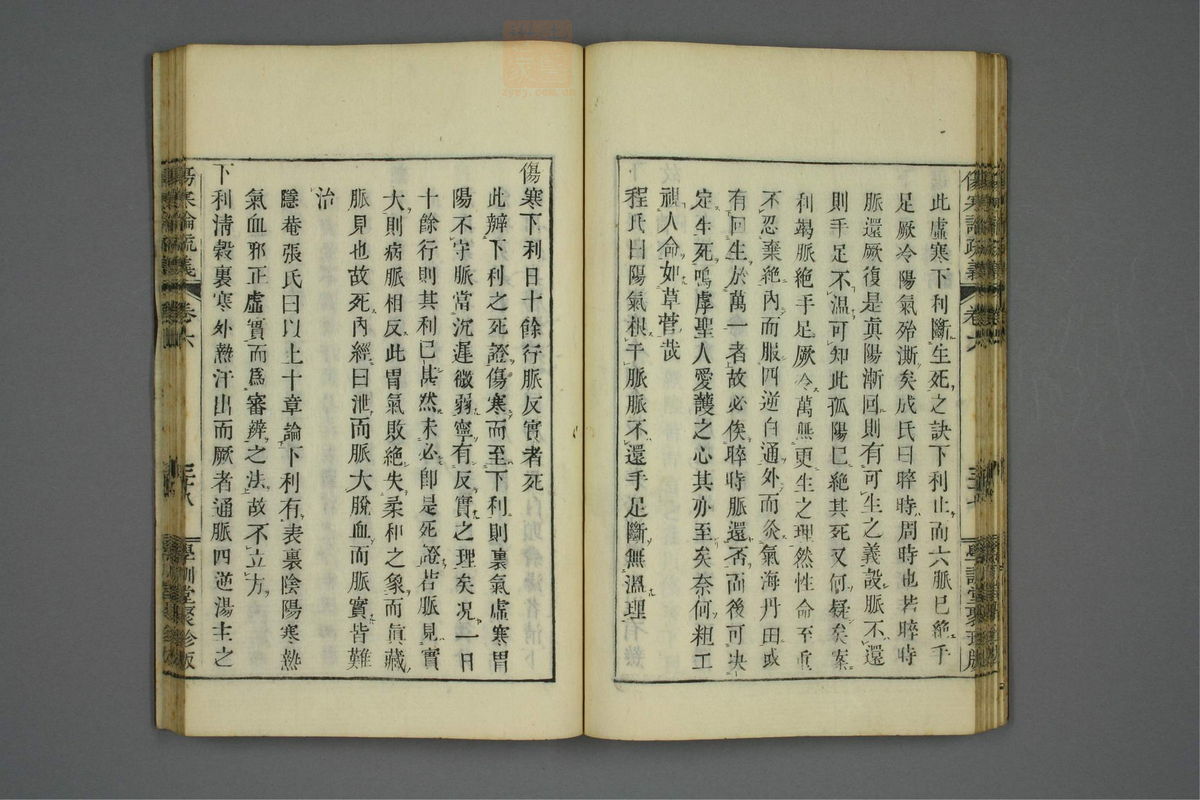 此虛寒下利斷生死之訣下利止而六脈已絕手
足厥冷陽氣殆澌矣成氏曰晬時周時也若晬時
脈還厥復是眞陽漸回則有可生之義設脈不還
則手足不溫可知此孤陽已絕其死又何疑矣案
利竭脈絕手足厥冷萬無更生之理然性命至重
不忍棄絕內而服四逆白通外而灸氣海丹田或
有回生於萬一者故必俟晬時脈還否而後可决
定生死嗚虖聖人愛護之心其亦至矣奈何粗工
視人命如草菅哉
程氏曰陽氣根于脈脈不還手足斷無溫理
傷寒論疏義
卷六
學訓堂聚珍版
傷寒下利日十餘行脈反實者死
此辨下利之死證傷寒而至下利則裏氣虛寒胃
陽不守脈當沉遲微弱寧有反實之理矣况一日
十餘行則其利已甚然未必卽是死證若脈見實
大則病脈相反此胃氣敗絕失柔和之象而眞藏
脈見也故死內經曰泄而脈大脫血而脈實皆難
治
隱菴張氏曰以上十章論下利有表裏陰陽寒熱
氣血邪正虛實而爲審辨之法故不立方
下利淸穀裏寒外熱汗出而厥者通脈四逆湯主之
傷寒論疏義
卷六
三十八
學訓堂聚珍版